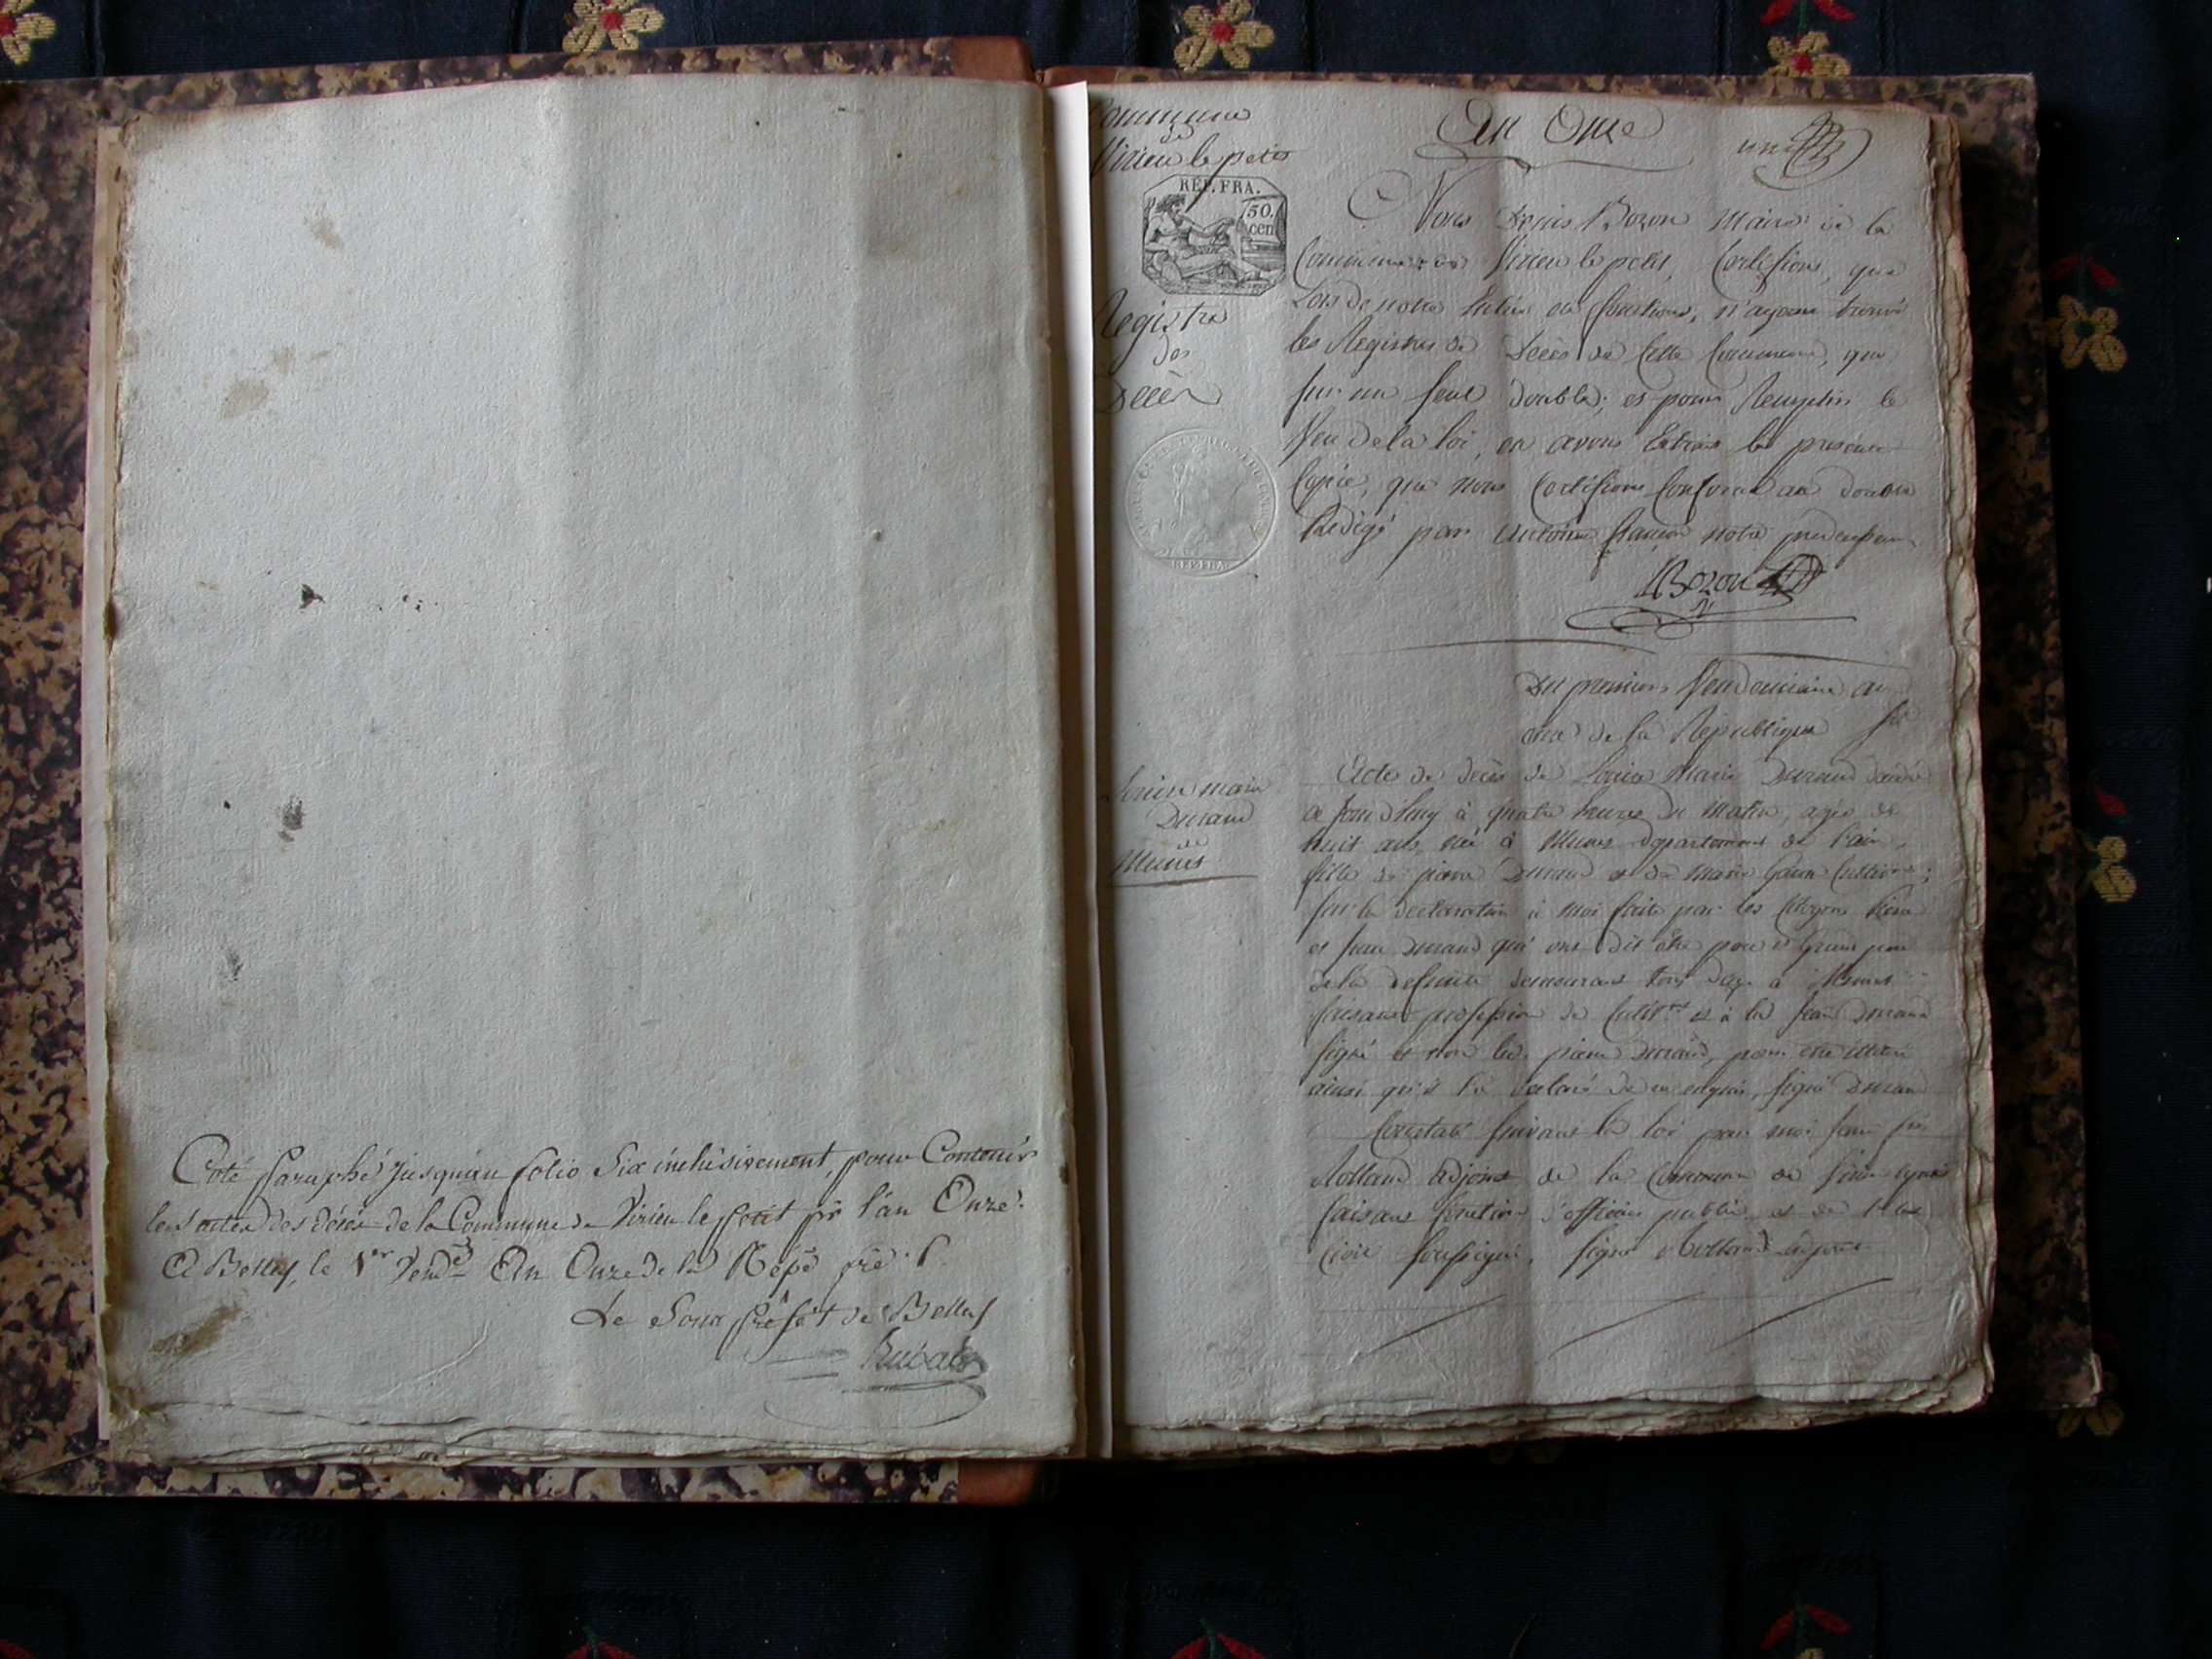 Coté paraphé Jusquau folio Six inclusivement, pour Contenir
les actes des décès de la Commune de Virieu le petit pr l'an Onze.
A Belley, le 1er Vendre An Onze de la Répe fre
Le Sous préfet de Belley
Rubat
Commune
de
Virieu le petit
REP. FRA.
50.
cen
Registre
des
Décès
REP. FRA.
An Onze
un
Nous Denis Bozon Maire de la
Commune de Virieu le petit, Certifions, que
Lors de notre Entrée en fonctions, n'ayant trouvé
les Registres de Décès de Cette Commune, que
sur un seul double; et pour Remplir le
Veu de la loi, en avons Extrait la presente
Copie, que nous Certifions Conforme au double
Redigé par Antoine notre predecesseur
Bozon
Du premier Vendemiaire an
onze de la République
Louise marie
Durand
de
Munet
Acte de decès de Louise Marie Durand
à quatre heures du matin, agée de
huit ans, née à departement de l'ain,
fille de pierre Durand et de Marie
sur la declaration à moi faite par les Citoyens Pierre
et Jean Durand qui ont dit être père et Grand père
de la defunte demeurant tous deux à
faisant profession de Cultivrs et a led. Jean Durand
signé et non led. pierre Durand, pour etre illitéré
ainsi qu'il l'a declaré de ce enquis, signé Durand
Constaté suivant la loi par moi
Rolland adjoint de la Commune de
faisant fonction d'officier public de l'état
Civil soussigné, signé Rolland adjoint